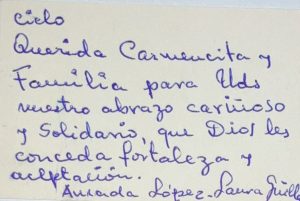 ciclo
Querida Carmencita y
Familia para Uds
nuestro abrazo cariñoso
y Solidario, que Dios les
conceda fortaleza y
aceptación.
López - Laura